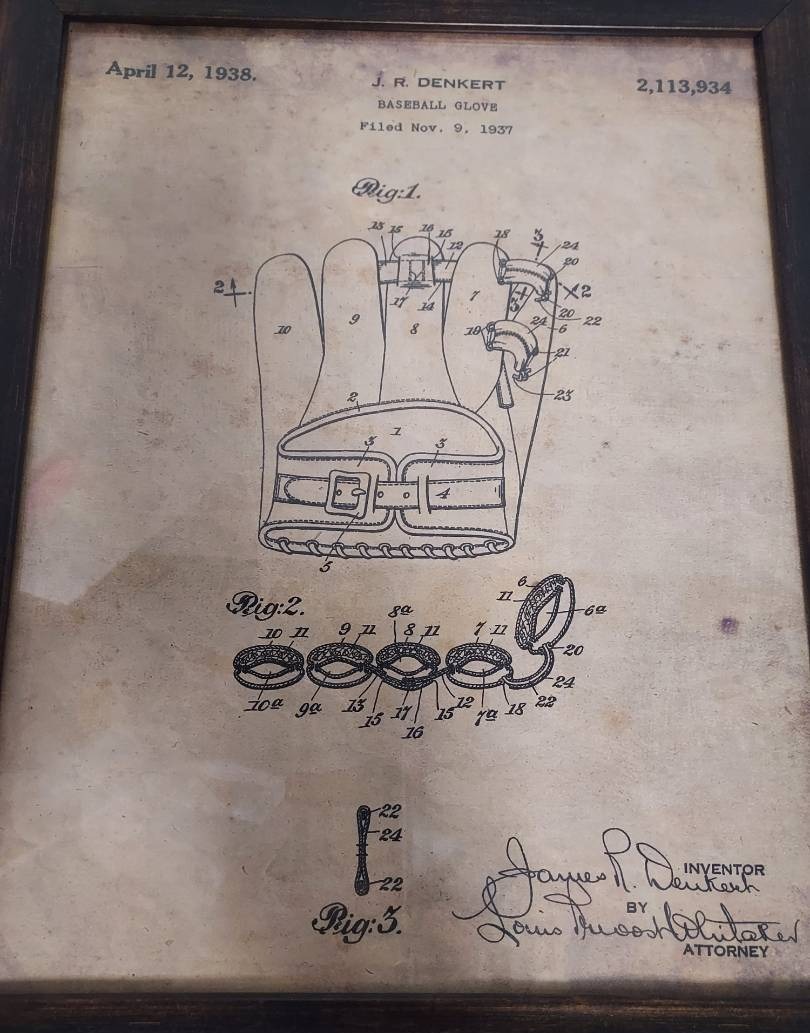 April 12, 1938.
J. R. DENKERT
2,113,934
BASEBALL GLOVE
Filed Nov. 9, 1937
Fig:1.
13 15 16 15 12 18 3 24
20
2 2
17 14 7 3 20
10 9 8 19 24 6 22
21
23
2
1
3 3
4
5
Fig:2.
6
11 6a
10 11 9 11 8a 8 11 7 11
20
24
10a 9a 13 15 17 16 15 12 7a 18 22
22
24
22
Fig:3.
James R. Denkert
INVENTOR
BY
Louis Prevost Whitaker
ATTORNEY